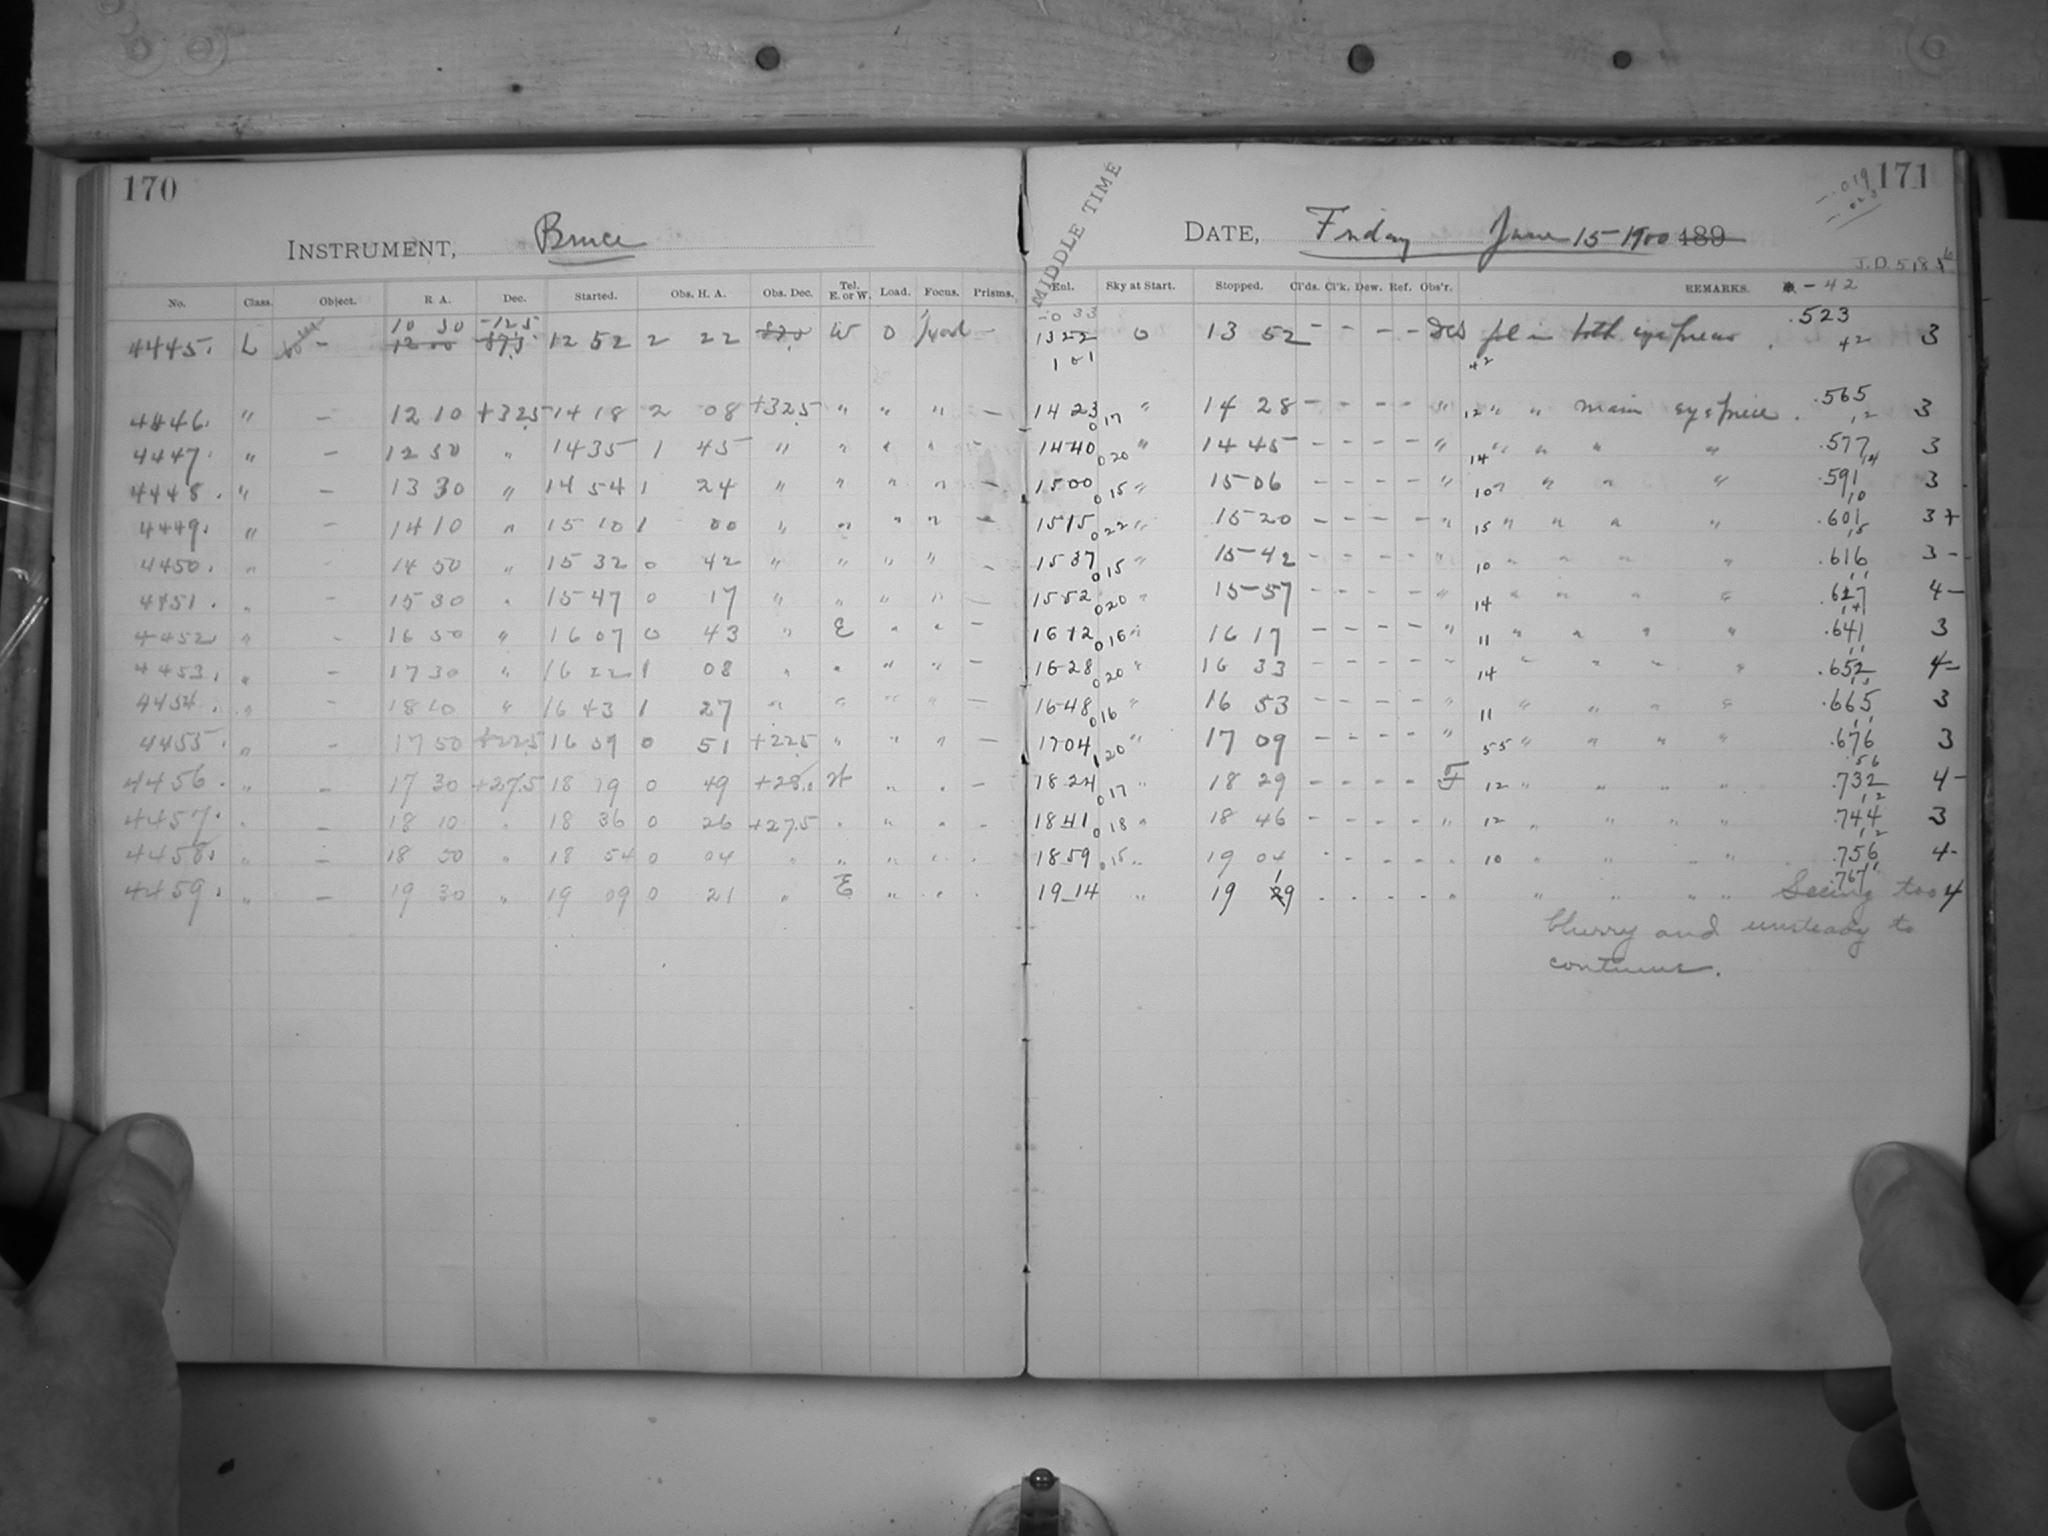 170
INSTRUMENT, Bruce
No. Class. Object. R. A. Dec. Started. Obs. H. A. Obs. Dec. Tel. E. or W. Load. Focus. Prisms.
10 30 -12.5
4445. L - 12 00 12 52 2 22 W 0 -
4446. " - 12 10 +32.5 14 18 2 08 +32.5 " " " -
4447. " - 12 50 " 14 35 1 45 " " " " -
4448. " - 13 30 " 14 54 1 24 " " " " -
4449. " - 14 10 " 15 10 1 00 " " " " -
4450. " - 14 50 " 15 32 0 42 " " " " -
4451. " - 15 30 " 15 47 0 17 " " " " -
4452. " - 16 50 " 16 07 0 43 " E " " -
4453. " - 17 30 " 16 22 1 08 " " " " -
4454. " - 18 10 " 16 43 1 27 " " " " -
4455. " - 17 50 +22.5 16 59 0 51 +22.5 " " " -
4456. " - 17 30 +27.5 18 19 0 49 +28.0 W " " -
4457. " - 18 10 " 18 36 0 26 +27.5 " " " -
4458. " - 18 50 " 18 54 0 04 " " " " -
4459. " - 19 30 " 19 09 0 21 " E " " -
171
MIDDLE TIME
-.019
-.023
DATE, Friday June 15 1900 189
J.D. 5185 6
Enl. Sky at Start. Stopped. Cl'ds. Cl'k. Dew. Ref. Obs'r. REMARKS. - 42
-0 33
13 22 0 13 52 - - - - in both eyepieces . .523 3
1 01 42 42
14 23 " 14 28 - - - - " 12 " " main eyepiece . .565 3
0 17 12
14 40 " 14 45 - - - - " 14 " " " " .577 3
0 20 14
15 00 " 15 06 - - - - " 10 " " " " .591 3
0 15 10
15 15 " 15 20 - - - - " 15 " " " " .601 3+
0 22 15
15 37 " 15 42 - - - - " 10 " " " " .616 3-
0 15 11
15 52 " 15 57 - - - - " 14 " " " " .627 4-
0 20 14
16 12 " 16 17 - - - - " 11 " " " " .641 3
0 16 11
16 28 " 16 33 - - - - " 14 " " " " .652 4-
0 20 13
16 48 " 16 53 - - - - " 11 " " " " .665 3
0 16 11
17 04 " 17 09 - - - - " 55 " " " " .676 3
1 20 56
18 24 " 18 29 - - - - F 12 " " " " .732 4-
0 17 12
18 41 " 18 46 - - - - " 12 " " " " .744 3
0 18 12
18 59 " 19 04 - - - - " 10 " " " " .756 4-
0 15 11
19 14 " 19 19 - - - - " " " " " .767 Seeing too 4
blurry and unsteady to
continue.